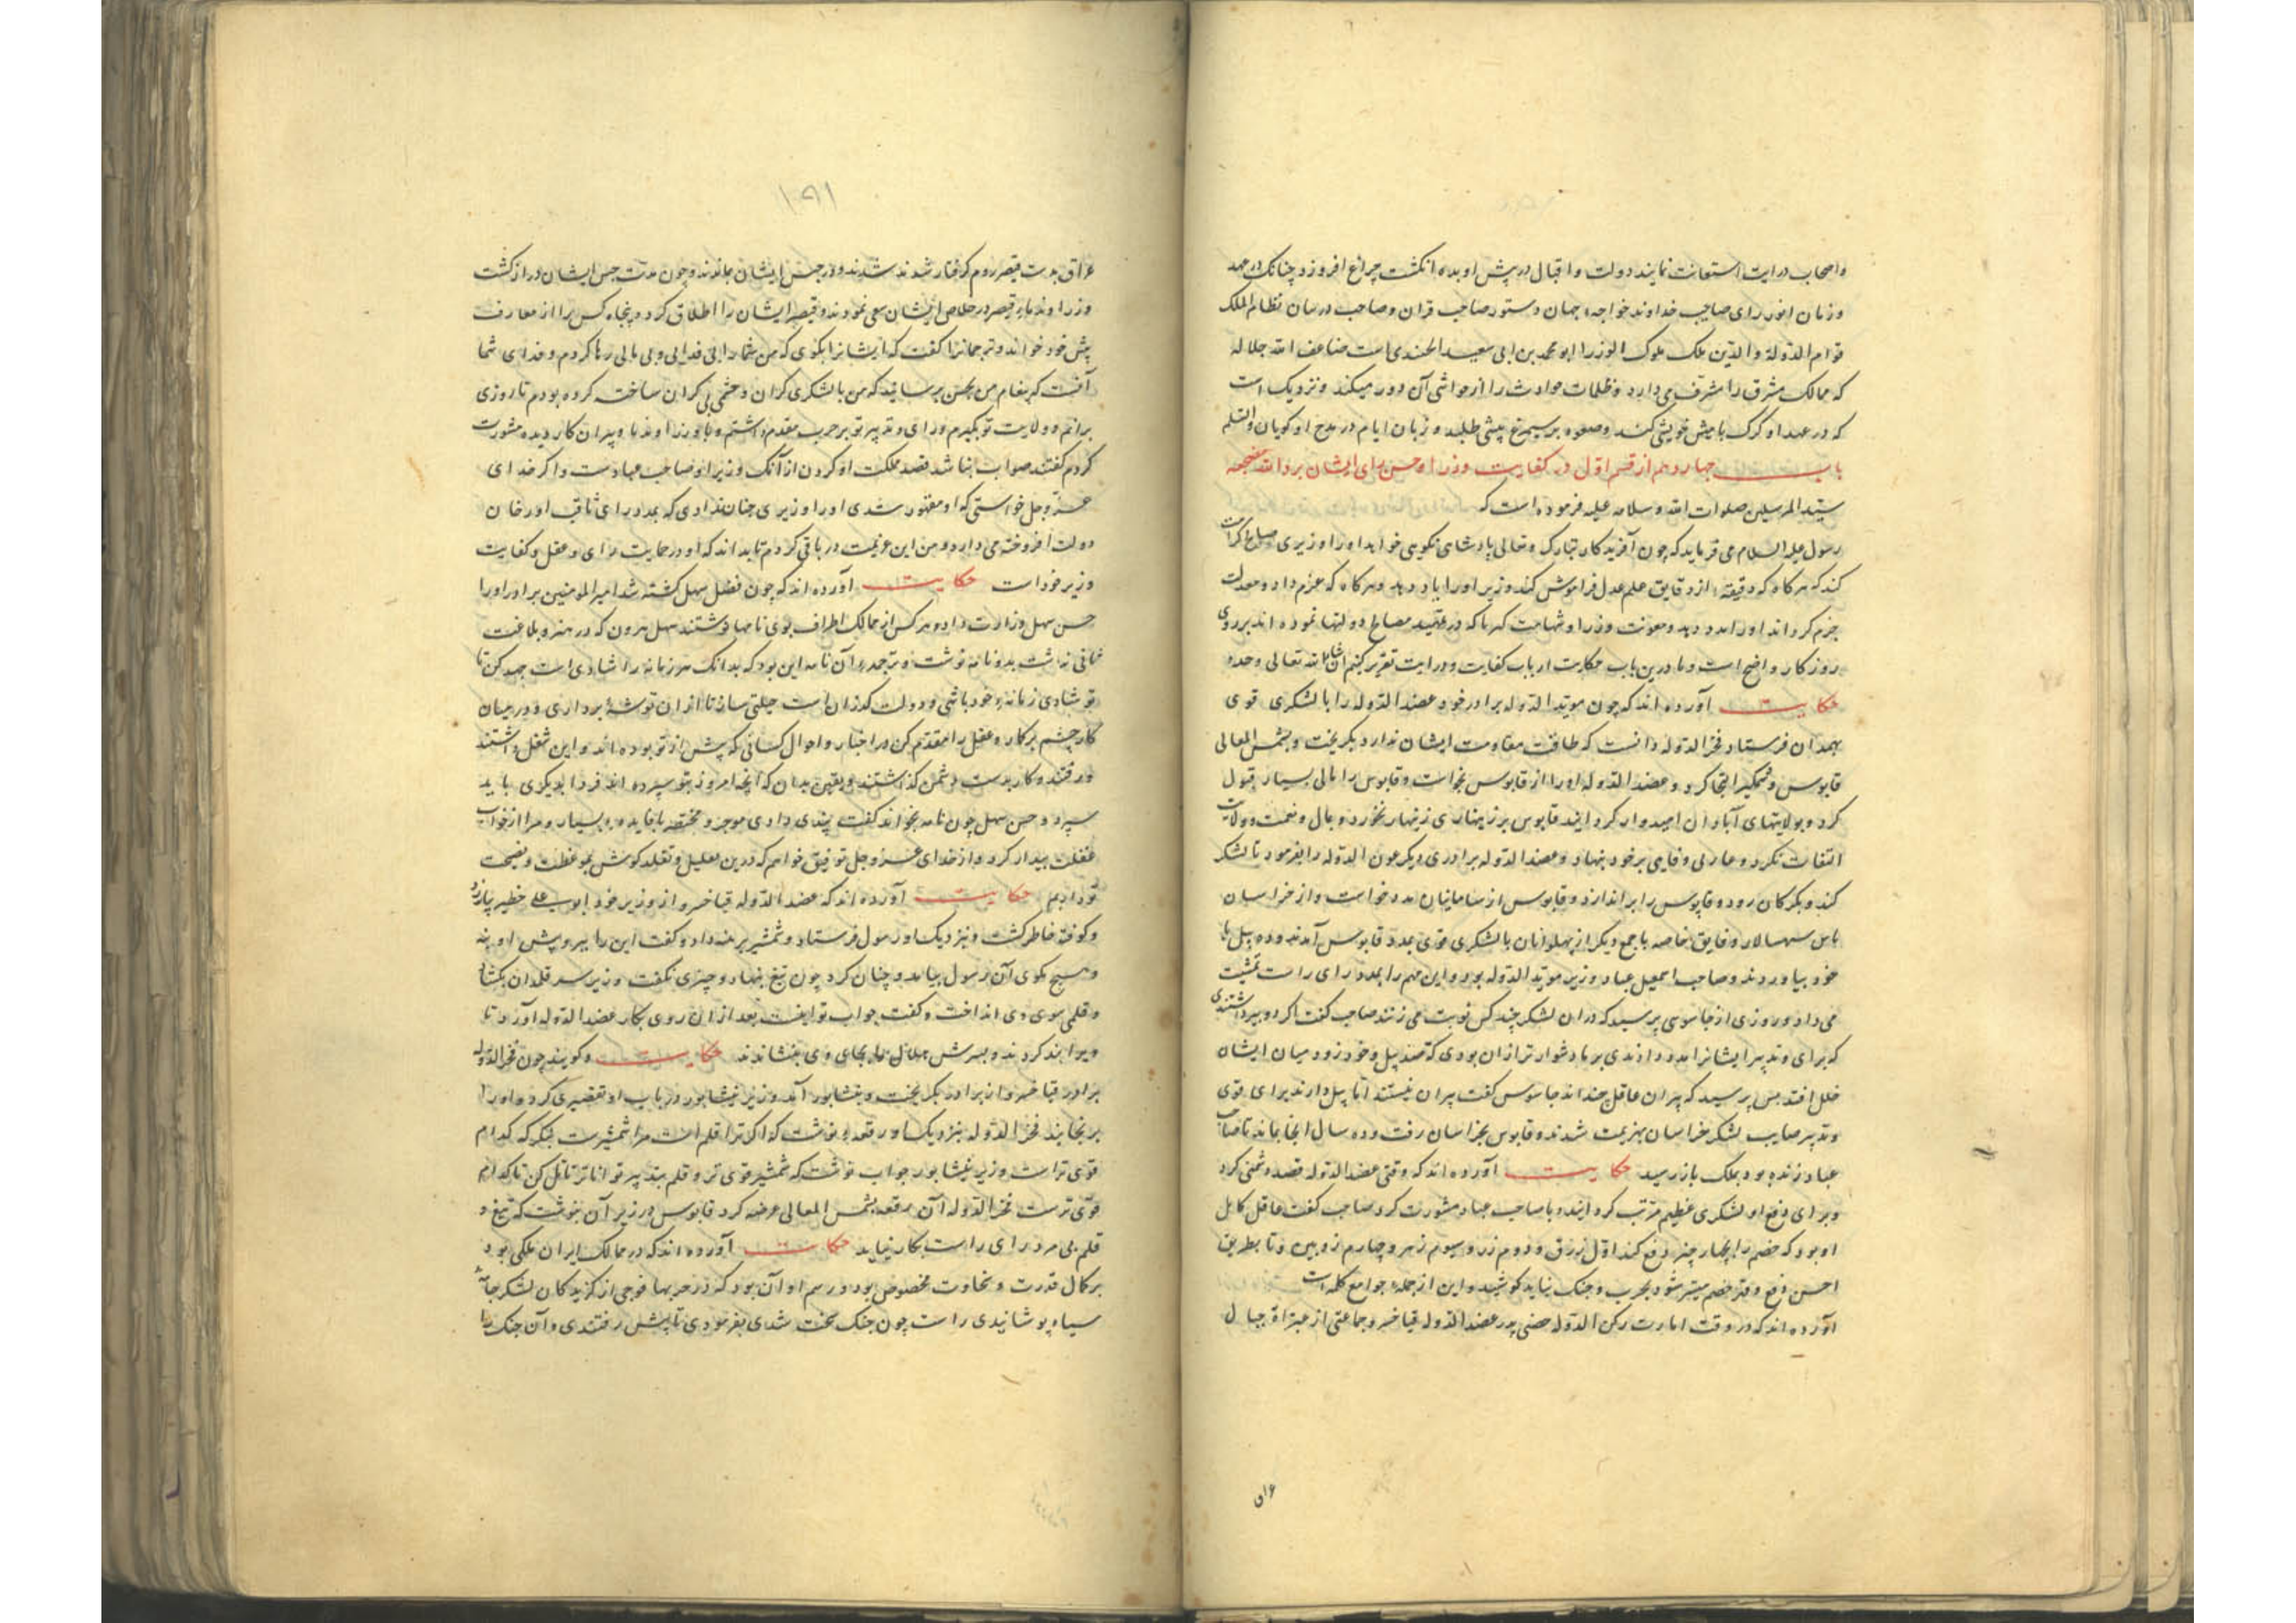 واصحاب درایت استعانت نمایند دولت و اقبال در پیش او بده انکشت چراغ افروزد چنانک در عهد
و زمان انور رای صاحب خداوند خواجه جهان دستور صاحب قران و صاحب درسان نظام الملک
قوام الدولة والدین ملک ملوک الوزرا ابو محمد بن ابی سعید الجندی است ضاعف الله جلاله
که ممالک مشرق را مشرف می دارد و ظلمات حوادث را از حواشی آن دور میکند و نزدیک است
که در عهد او کرک با میش خویشی کند و صعوه بر سیمرغ پیشی طلبد و زبان ایام در مدح او کویان والسلم
باب چهاردهم از قسم اول در کفایت وزرا و حسن رای ایشان برد الله مضجعه
سید المرسلین صلوات الله و سلامه علیه فرموده است که
رسول علیه السلام می فرماید که چون آفریدکار تبارک و تعالی پادشاهی نکویی خواهد او را وزیری صالح کرامت
کند که هرکاه که دقیقه از دقایق علم عدل فراموش کند وزیر او را یاد دهد و هرکاه که عزم داد و معدلت
جزم کرداند او را مدد دهد و معونت وزرا و شهامت کهن که در تمهید مصالح دولتها نموده اند بر روی
روزکار واضح است و ما درین باب حکایت ارباب کفایت و درایت تقریر کنیم ان شاء الله تعالی وحده
حکایت آورده اند که چون موید الدوله برادر خود عضد الدوله را با لشکری قوی
بهمدان فرستاد فخر الدوله دانست که طاقت مقاومت ایشان ندارد بکریخت و بشمس المعالی
قابوس وشمکیر التجا کرد و عضد الدوله او را از قابوس بخواست و قابوس را مالی بسیار قبول
کرد و بولایتهای آبادان امیدوار کردانید قابوس بر زینهاری زینهار نخورد و بمال و نعمت و ولایت
التفات نکرد و عار بی وفایی بر خود ننهاد و عضد الدوله برادری دیکر عون الدوله را بفرمود تا لشکر
کند و بکرکان رود و قابوس را براندازد و قابوس از سامانیان مدد خواست و از خراسان
تاش سپهسالار و فایق خاصه با جمع دیکر از پهلوانان با لشکری قوی بمدد قابوس آمدند و ده پیل با
خود بیاوردند و صاحب اسمعیل عباد وزیر موید الدوله بود و این مهم را بمدد رای راست تمشیت
می داد و روزی از جاسوسی پرسید که در ان لشکر چند کس نوبت می زنند صاحب کفت اکر دو پیر داشتندی
که برای و تدبیر ایشانرا مدد دادندی بر ما دشوارتر از ان بودی که صد پیل و خود زود میان ایشان
خلل افتد پس پرسید که پیران عاقل چند اند جاسوس کفت پیران نیستند اما پیل دارند برای قوی
و تدبیر صایب لشکر خراسان بهزیمت شدند و قابوس بخراسان رفت و ده سال آنجا بماند تا صاحب
عباد زنده بود بملک باز رسید حکایت آورده اند که وقتی عضد الدوله قصد دشمنی کرد
و برای دفع او لشکری عظیم مرتب کردانید و با صاحب عباد مشورت کرد صاحب کفت عاقل کامل
او بود که خصم را بچهار چیز دفع کند اول برزق و دوم زر و سیوم زهر و چهارم زوبین و تا بطریق
احسن دفع و قهر خصم میسر شود بحرب و جنک نباید کوشید و این از جمله جوامع کلم است
آورده اند که در وقت امارت رکن الدوله حسن پدر عضد الدوله فنا خسرو جماعتی از جبال
عراق بدست قیصر روم کرفتار شدند و در حبس ایشان بماندند و چون مدت حبس ایشان دراز کشت
وزرا و ندماء قیصر در خلاص ایشان سعی نمودند و قیصر ایشان را اطلاق کرد و پنجاه کس را از معارف
پیش خود خواند و ترجمانرا کفت که ایشانرا بکوی که من شما را بی فدایی و بی مالی رها کردم و فدای شما
آنست که پیغام من بحسن برسانید که من با لشکری کران و حشمی بی کران ساخته کرده بودم تا روزی
برانم و ولایت تو بکیرم و رای و تدبیر تو بر حرب مقدم داشتم و با وزرا و ندما و پیران کار دیده مشورت
کردم کفتند صواب نباشد قصد مملکت او کردن از آنک وزیر او صاحب عبادست و اکر خدای
عز و جل خواستی که او مقهور شدی او را وزیری چنان ندادی که بمدد رای ثاقب او رخان
دولت افروخته می دارد و من این عزیمت در باقی کردم تا بداند که او در حمایت رای و عقل و کفایت
وزیر خود است حکایت آورده اند که چون فضل سهل کشته شد امیر المومنین برادر او را
حسن سهل وزارت داد و هر کس از ممالک اطراف بوی نامها نوشتند سهل هرون که در هنر و بلاغت
ثانی نداشت بدو نامه نوشت و ترجمه آن نامه این بود که بدانک هر زمانه را شادی است جهد کن تا
تو شادی زمانه خود باشی و دولت کذران است حیلتی ساز تا از ان توشه برداری و در میان
کار چشم بر کار و عقل را مقدم کن و در اخبار و احوال کسانی که پیش از تو بوده اند و این شغل داشتند
و رفتند و کار بدست دشمن کذاشتند و یقین بدان که آنچه امروز بتو سپرده اند فردا بدیکری باید
سپرد و حسن سهل چون نامه بخواند کفت پندی دادی موجز و مختصر با فایده بسیار و مرا از خواب
غفلت بیدار کرد و از خدای عز و جل توفیق خواهم که درین تعلیل و تقلد کوش بموعظت و نصیحت
تو دارم حکایت آورده اند که عضد الدوله فنا خسرو از وزیر خود ابو علی خطیر بیازرد
و کوفته خاطر کشت و نزدیک او رسول فرستاد و شمشیر برهنه داد و کفت این را ببر و پیش او بنه
و هیچ مکوی آن رسول بیامد و چنان کرد چون تیغ بنهاد و چیزی نکفت وزیر سر قلمدان بکشاد
و قلمی سوی وی انداخت و کفت جواب تو اینست بعد از ان روی بکار عضد الدوله آورد تا
ویرا بند کردند و بسرش را بجای وی بنشاندند حکایت و کویند چون فخر الدوله
برادر فنا خسرو از برادر بکریخت و بنشابور آمد وزیر نیشابور در باب او تقصیری کرد و او را
برنجانید فخر الدوله بنزدیک او رقعه نوشت که اکر ترا قلم است مرا شمشیرست بنکر که کدام
قوی تراست وزیر نیشابور جواب نوشت که شمشیر قوی تر و قلم بتدبیر تواناتر تامل کن تا کدام
قوی ترست فخر الدوله آن رقعه بشمس المعالی عرضه کرد قابوس در زیر آن بنوشت که تیغ و
قلم بی مرد رای راست بکار نیاید حکایت آورده اند که در ممالک ایران ملکی بود
بر کمال قدرت و سخاوت مخصوص بود و رسم او آن بود که در حربها فوجی از کزیدکان لشکر جامه
سیاه پوشانیدی راست چون جنک سخت شدی بفرمودی تا پیش رفتندی و آن جنک را
۱۵۹۱